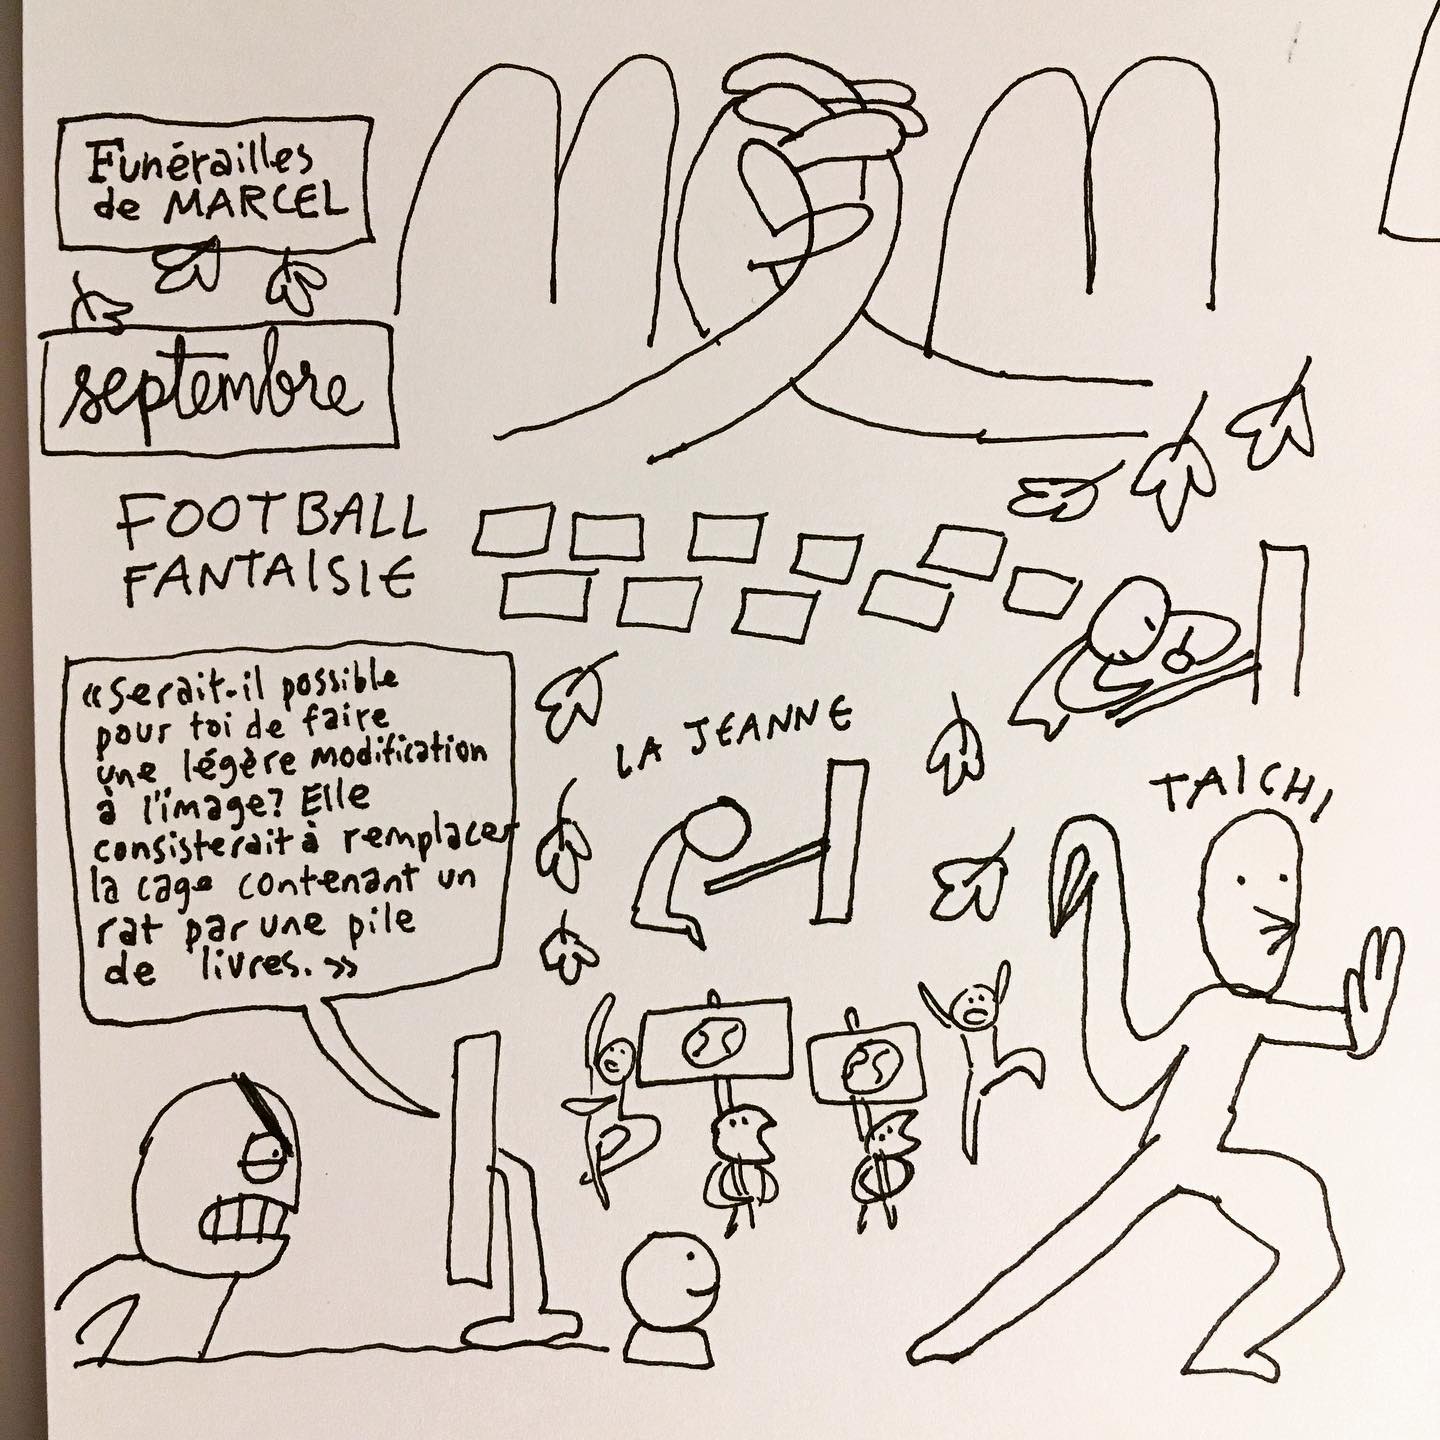 Funérailles
de MARCEL
septembre
FOOTBALL
FANTAISIE
«Serait-il possible
pour toi de faire
une légère modification
à l'image? Elle
consisterait à remplacer
la cage contenant un
rat par une pile
de livres.»
LA JEANNE
TAICHI